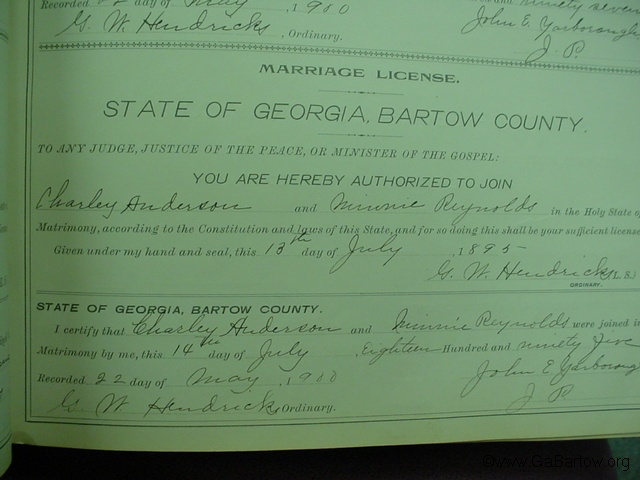 Recorded 22 day of May, 1900
and ninety seven
G. W. Hendricks, Ordinary.
John E. Yarborough
J. P.
MARRIAGE LICENSE.
STATE OF GEORGIA, BARTOW COUNTY.
TO ANY JUDGE, JUSTICE OF THE PEACE, OR MINISTER OF THE GOSPEL:
YOU ARE HEREBY AUTHORIZED TO JOIN
Charley Anderson and Minnie Reynolds in the Holy State of
Matrimony, according to the Constitution and laws of this State, and for so doing this shall be your sufficient license.
Given under my hand and seal, this 13th day of July, 1895
G. W. Hendricks (L. S.)
ORDINARY.
STATE OF GEORGIA, BARTOW COUNTY.
I certify that Charley Anderson and Minnie Reynolds were joined in
Matrimony by me, this 14th day of July, Eighteen Hundred and ninety Five
Recorded 22 day of May, 1900
John E Yarborough
G. W Hendricks, Ordinary.
J P.
©www.GaBartow.org